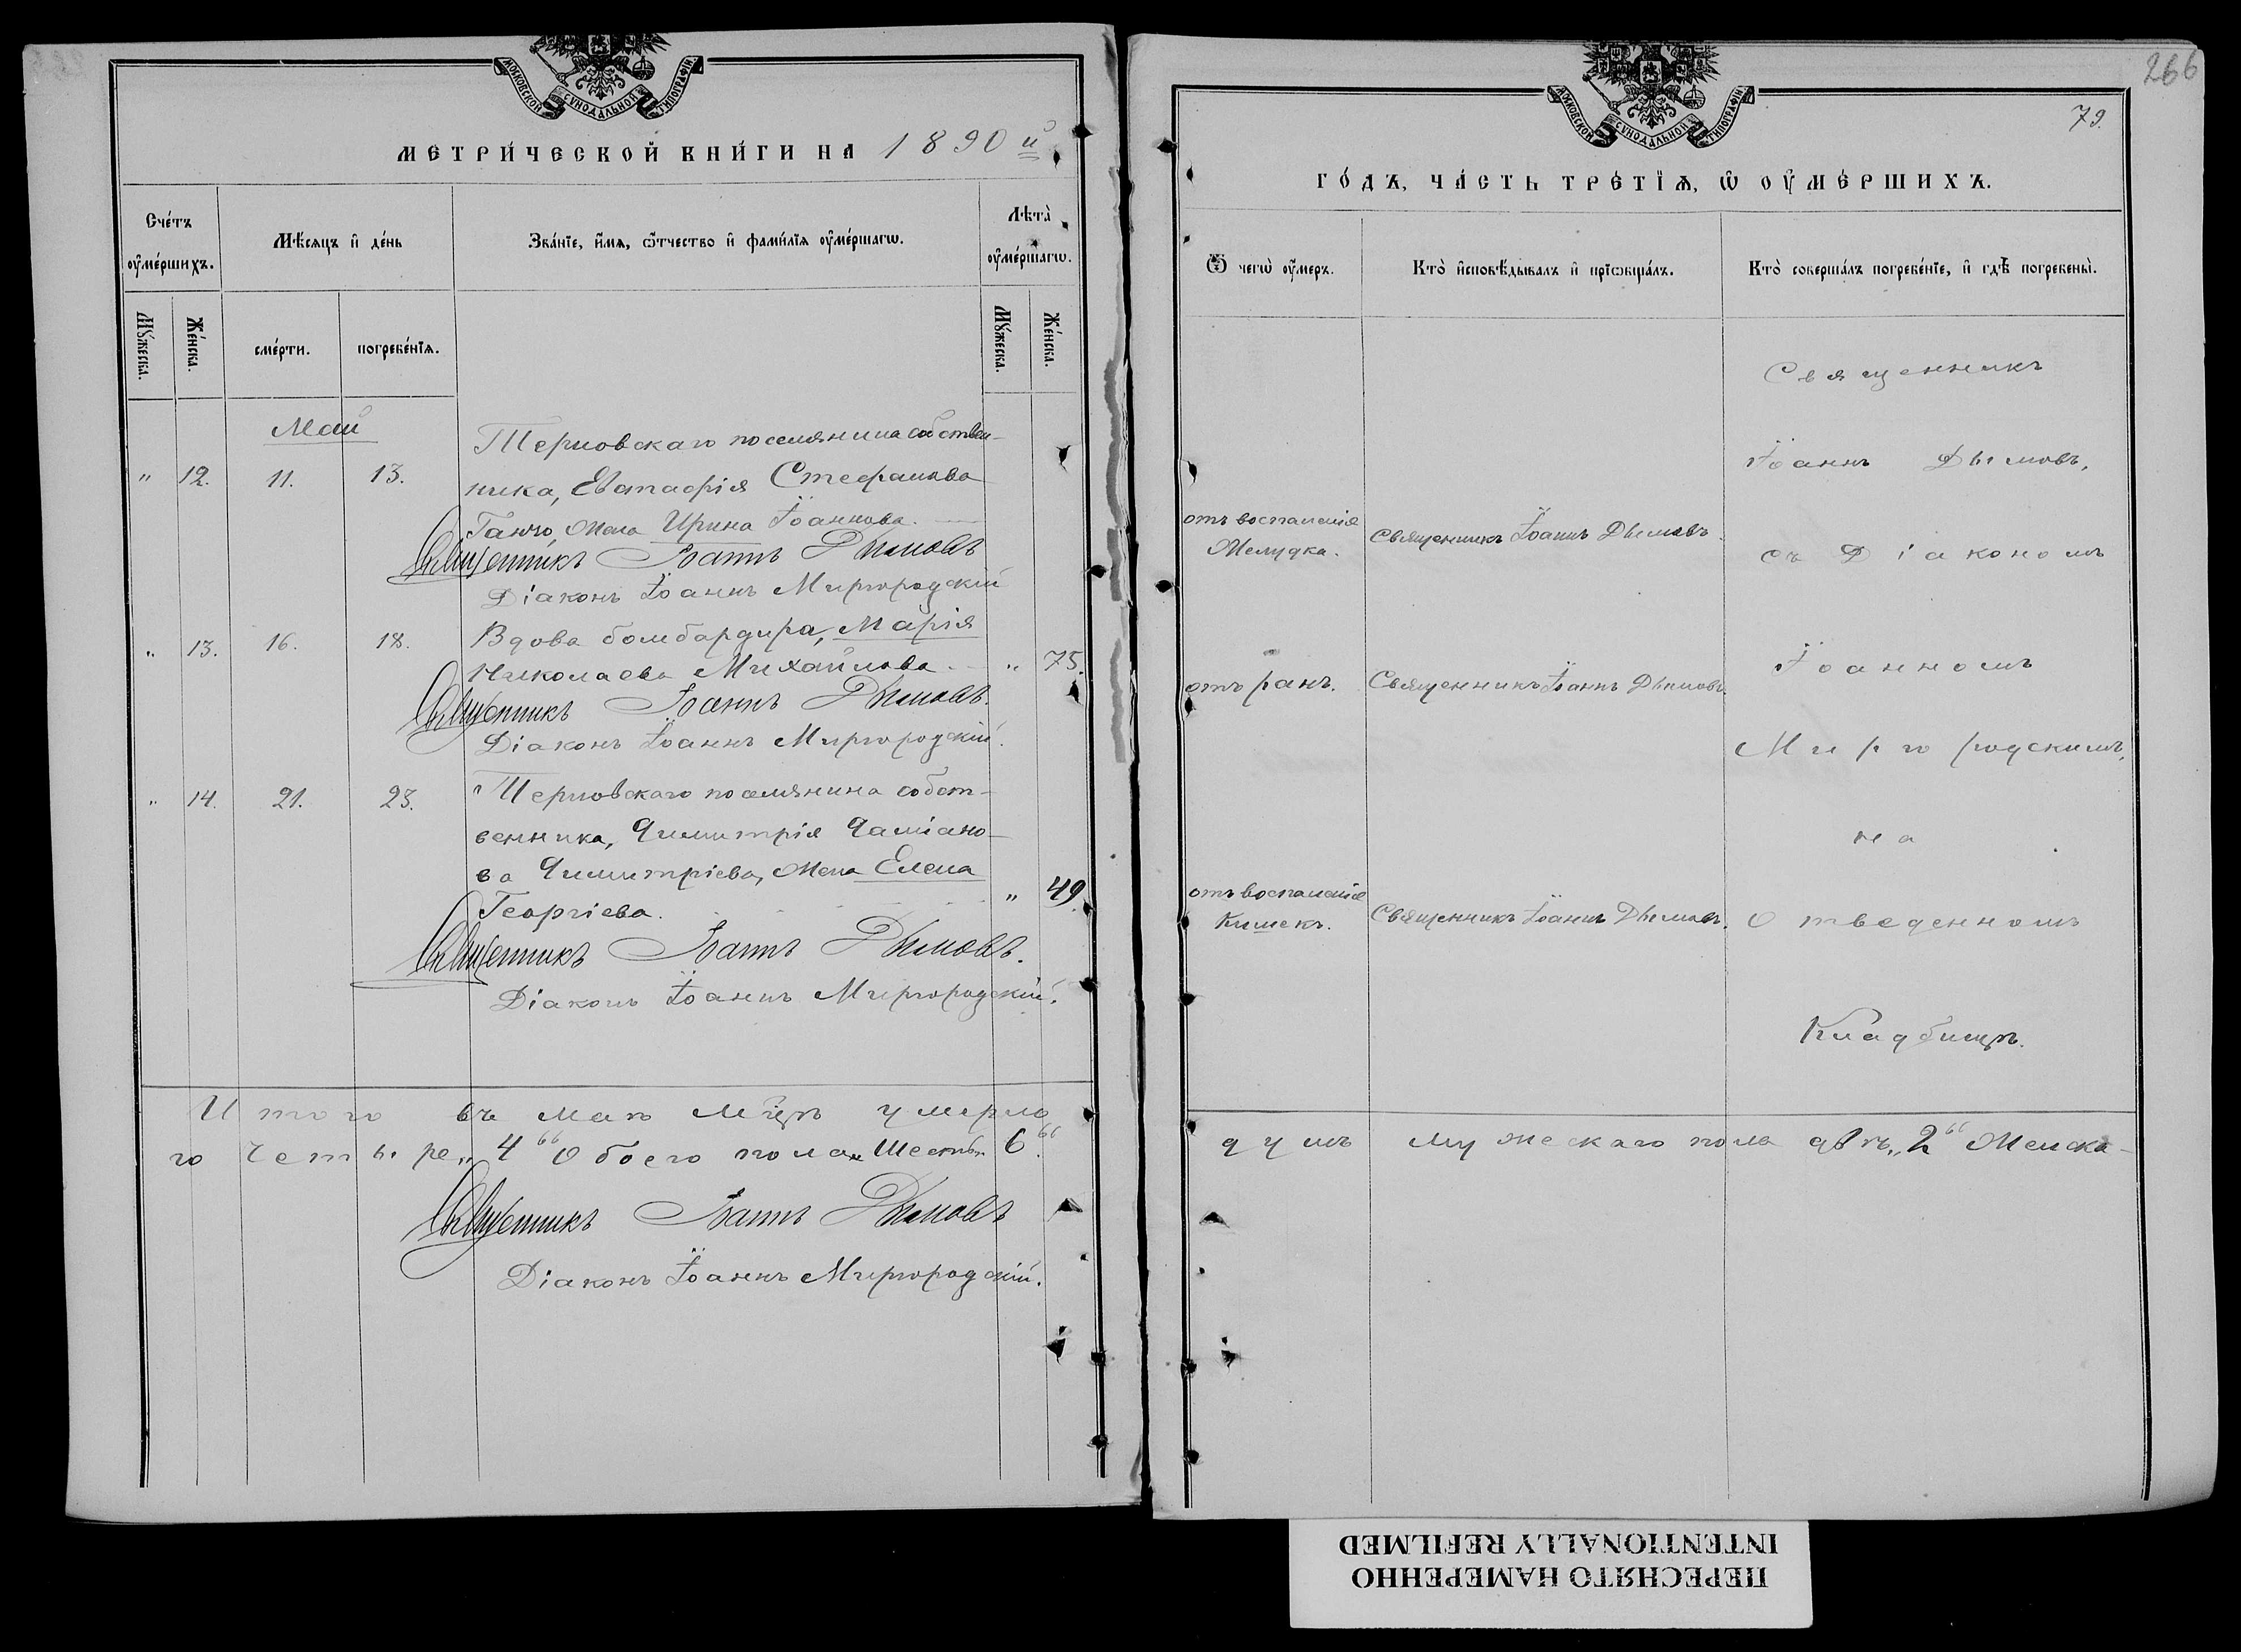 МОСКОВСКОЙ СѴНОДАЛЬНОЙ ТИПОГРАФІИ
МЕТРИ́ЧЕСКОЙ КНИ́ГИ НА 1890 й
Сче́тъ ᲂу҆ме́ршихъ.
Мѣ́сяцъ и҆ де́нь
Зва́нїе, и҆́мѧ, ѻ҆́тчество и҆ фамилїѧ ᲂу҆ме́ршагѡ.
Лѣта̀ ᲂу҆ме́ршагѡ.
Мꙋ́жеска.
Же́нска.
сме́рти.
погребе́нїѧ.
Мꙋ́жеска.
Же́нска.
Май
Терновскаго поселянина собствен-
" 12. 11. 13. ника, Евстафія Стефанова
Ганчо, жена Ирина Іоаннова.
Священникъ Іоаннъ Дымовъ
Діаконъ Іоаннъ Миргородскій
" 13. 16. 18. Вдова бомбардира, Марія
Николаева Михайлова. " 75.
Священникъ Іоаннъ Дымовъ.
Діаконъ Іоаннъ Миргородскій.
" 14. 21. 23. Терновскаго поселянина собст-
венника, Димитрія Даміано-
ва Димитріева, жена Елена
Георгіева. " 49.
Священникъ Іоаннъ Дымовъ.
Діаконъ Іоаннъ Миргородскій.
Итого въ маѣ мцѣ умерло
го четыре „4“ Обоего пола „шесть„ 6“.
Священникъ Іоаннъ Дымовъ
Діаконъ Іоаннъ Миргородскій.
266
79.
МОСКОВСКОЙ СѴНОДАЛЬНОЙ ТИПОГРАФІИ
ГО́ДЪ, ЧА́СТЬ ТРЕ́ТЇѦ, Ѡ ОУ҆МЕ́РШИХЪ.
Ѿ чегѡ̀ ᲂу҆́меръ.
Кто̀ и҆сповѣ́дывалъ и҆ прїѡбща́лъ.
Кто̀ соверша́лъ погребе́нїе, и҆ гдѣ̀ погребены̀.
отъ воспаленія
Желудка.
Священникъ Іоаннъ Дымовъ.
отъ ранъ.
Священникъ Іоаннъ Дымовъ.
отъ воспаленія
Кишекъ.
Священникъ Іоаннъ Дымовъ.
Священникъ
Іоаннъ Дымовъ,
съ Діакономъ
Іоанномъ
Миргородскимъ,
на
Отведенномъ
Кладбищѣ.
душъ мужескаго пола двѣ „2“ Женска-
ПЕРЕСНЯТО НАМЕРЕННО
INTENTIONALLY REFILMED